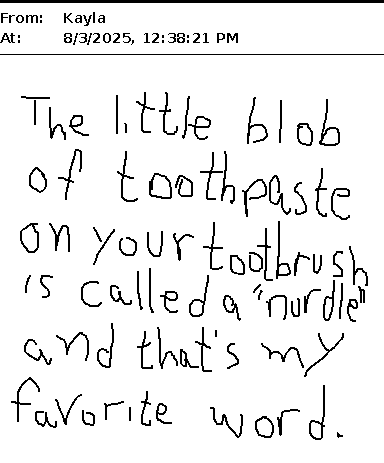 From: Kayla
At: 8/3/2025, 12:38:21 PM
The little blob
of toothpaste
on your tootbrush
is called a "nurdle"
and that's my
favorite word.